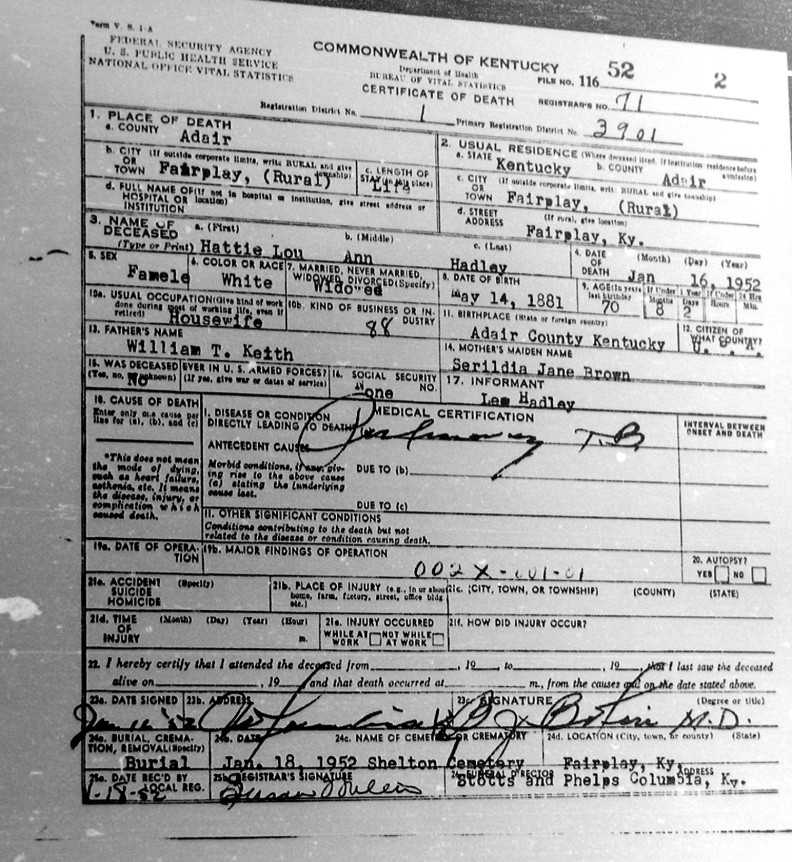 Form V. S. 1-A
FEDERAL SECURITY AGENCY
U. S. PUBLIC HEALTH SERVICE
NATIONAL OFFICE VITAL STATISTICS
COMMONWEALTH OF KENTUCKY
Department of Health
BUREAU OF VITAL STATISTICS
CERTIFICATE OF DEATH
52 2
FILE NO. 116
REGISTRAR'S NO. 71
Registration District No. 1 Primary Registration District No. 3901
1. PLACE OF DEATH
a. COUNTY Adair
b. CITY (If outside corporate limits, write RURAL and give township)
OR TOWN Fairplay, (Rural)
c. LENGTH OF STAY (in this place)
d. FULL NAME OF (If not in hospital or institution, give street address or location)
HOSPITAL OR INSTITUTION
2. USUAL RESIDENCE (Where deceased lived. If institution: residence before admission)
a. STATE Kentucky b. COUNTY Adair
c. CITY (If outside corporate limits, write RURAL and give township)
OR TOWN Fairplay, (Rural)
d. STREET ADDRESS (If rural, give location)
Fairplay, Ky.
3. NAME OF DECEASED (Type or Print)
a. (First) b. (Middle) c. (Last)
Hattie Lou Ann Hadley
4. DATE OF DEATH (Month) (Day) (Year)
Jan 16, 1952
5. SEX
Famele
6. COLOR OR RACE
White
7. MARRIED, NEVER MARRIED, WIDOWED, DIVORCED (Specify)
Widowed
8. DATE OF BIRTH
May 14, 1881
9. AGE (In years last birthday) If Under 1 Year If Under 24 Hrs
Months Days Hours Min.
70 8 2
10a. USUAL OCCUPATION (Give kind of work done during most of working life, even if retired)
Housewife
10b. KIND OF BUSINESS OR INDUSTRY
88
11. BIRTHPLACE (State or foreign country)
Adair County Kentucky
12. CITIZEN OF WHAT COUNTRY?
U. S. A.
13. FATHER'S NAME
William T. Keith
14. MOTHER'S MAIDEN NAME
Serildia Jane Brown
15. WAS DECEASED EVER IN U. S. ARMED FORCES?
(Yes, no, or unknown) (If yes, give war or dates of service)
No
16. SOCIAL SECURITY NO.
None
17. INFORMANT
Lee Hadley
18. CAUSE OF DEATH
Enter only one cause per line for (a), (b), and (c)
*This does not mean the mode of dying, such as heart failure, asthenia, etc. It means the disease, injury, or complication which caused death.
MEDICAL CERTIFICATION
I. DISEASE OR CONDITION DIRECTLY LEADING TO DEATH
Pulmonary T.B
INTERVAL BETWEEN ONSET AND DEATH
ANTECEDENT CAUSES
Morbid conditions, if any, giving rise to the above cause (a) stating the underlying cause last.
DUE TO (b)
DUE TO (c)
II. OTHER SIGNIFICANT CONDITIONS
Conditions contributing to the death but not related to the disease or condition causing death.
19a. DATE OF OPERATION
19b. MAJOR FINDINGS OF OPERATION
002X-001-01
20. AUTOPSY?
YES NO
21a. ACCIDENT SUICIDE HOMICIDE (Specify)
21b. PLACE OF INJURY (e.g., in or about home, farm, factory, street, office bldg. etc.)
21c. (CITY, TOWN, OR TOWNSHIP) (COUNTY) (STATE)
21d. TIME OF INJURY (Month) (Day) (Year) (Hour) m.
21e. INJURY OCCURRED
WHILE AT WORK NOT WHILE AT WORK
21f. HOW DID INJURY OCCUR?
22. I hereby certify that I attended the deceased from , 19 to , 19 , that I last saw the deceased
alive on , 19 and that death occurred at m., from the causes and on the date stated above.
23a. DATE SIGNED 23b. ADDRESS 23c. SIGNATURE (Degree or title)
M.D.
24a. BURIAL, CREMATION, REMOVAL (Specify)
Burial
24b. DATE
Jan. 18, 1952
24c. NAME OF CEMETERY OR CREMATORY
Shelton Cemetery
24d. LOCATION (City, town, or county) (State)
Fairplay, Ky.
25a. DATE REC'D BY LOCAL REG.
1-18-52
25b. REGISTRAR'S SIGNATURE
Susan
26. FUNERAL DIRECTOR ADDRESS
Stotts and Phelps Columbia, Ky.